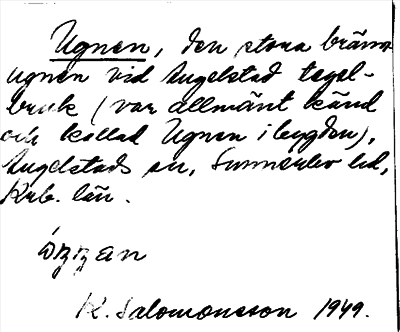 Ugnen, den stora bränn-
ugnen vid Augelstad tegel-
bruk (var allmänt känd
och kallad Ugnen i bygden),
Augelstads sn, Sunnerbo hd,
Krb. län.
K. Salomonsson 1949.